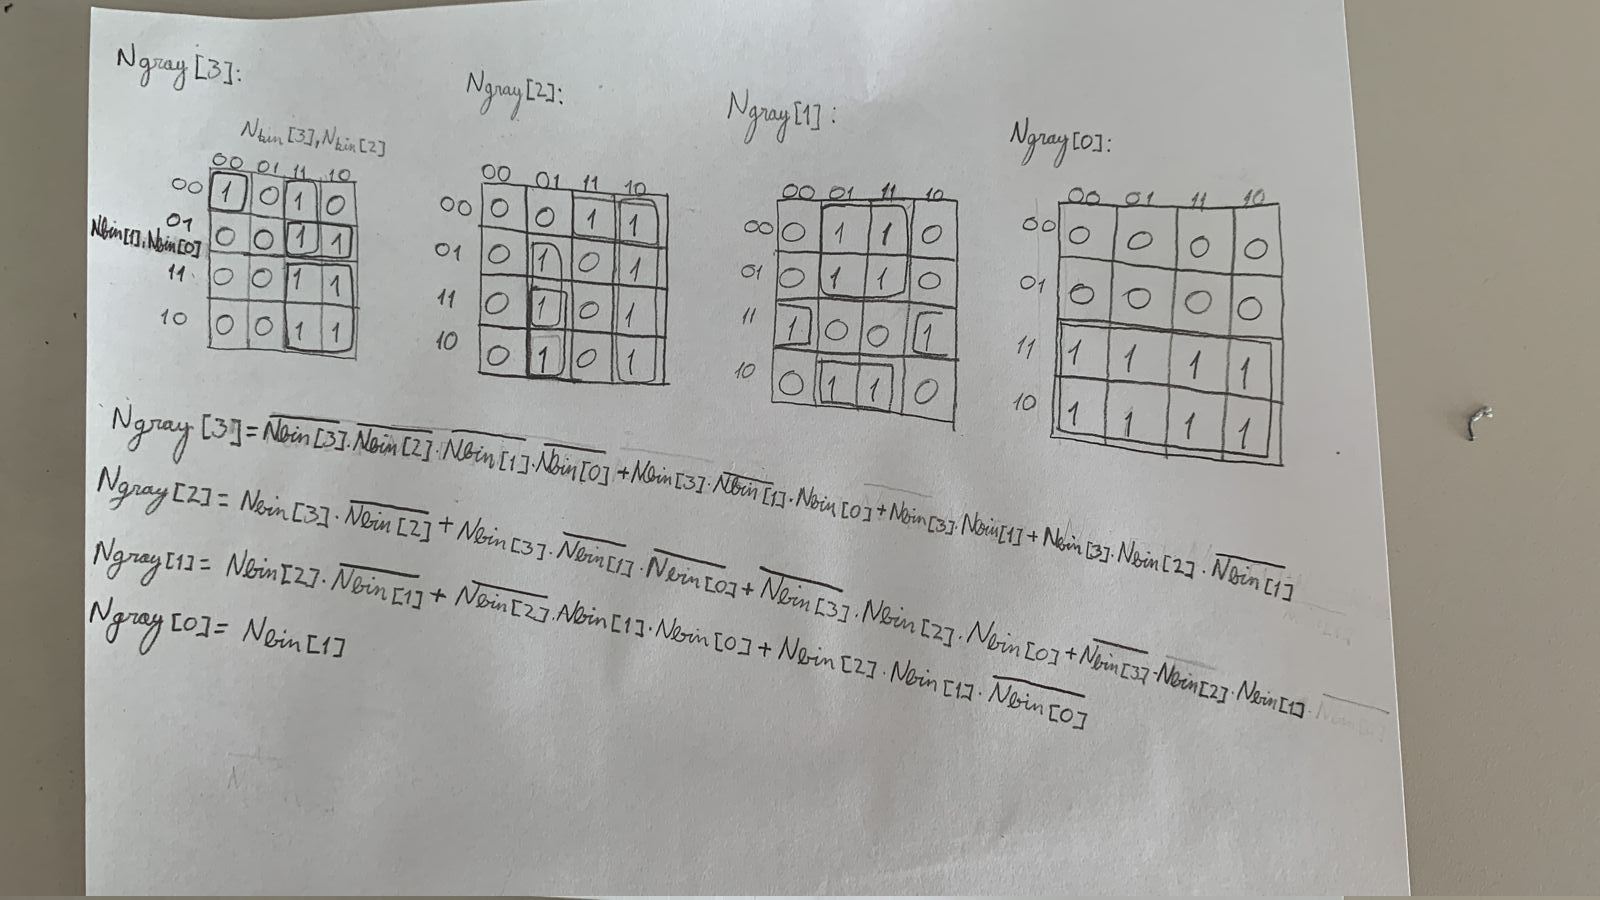 Ngray[3]:
Ngray[2]:
Ngray[1]:
Ngray[0]:
Nbin[3],Nbin[2]
00 01 11 10
00 1 0 1 0
01 0 0 1 1
Nbin[1],Nbin[0]
11 0 0 1 1
10 0 0 1 1
00 01 11 10
00 0 0 1 1
01 0 1 0 1
11 0 1 0 1
10 0 1 0 1
00 01 11 10
00 0 1 1 0
01 0 1 1 0
11 1 0 0 1
10 0 1 1 0
00 01 11 10
00 0 0 0 0
01 0 0 0 0
11 1 1 1 1
10 1 1 1 1
Ngray[3]=N̅b̅i̅n̅[̅3̅]̅.N̅b̅i̅n̅[̅2̅]̅.N̅b̅i̅n̅[̅1̅]̅.N̅b̅i̅n̅[̅0̅]̅+Nbin[3].N̅b̅i̅n̅[̅1̅]̅.Nbin[0]+Nbin[3].Nbin[1]+Nbin[3].Nbin[2].N̅b̅i̅n̅[̅1̅]̅
Ngray[2]=Nbin[3].N̅b̅i̅n̅[̅2̅]̅+Nbin[3].N̅b̅i̅n̅[̅1̅]̅.N̅b̅i̅n̅[̅0̅]̅+N̅b̅i̅n̅[̅3̅]̅.Nbin[2].Nbin[0]+N̅b̅i̅n̅[̅3̅]̅.Nbin[2].Nbin[1]
Ngray[1]=Nbin[2].N̅b̅i̅n̅[̅1̅]̅+N̅b̅i̅n̅[̅2̅]̅.Nbin[1].Nbin[0]+Nbin[2].Nbin[1].N̅b̅i̅n̅[̅0̅]̅
Ngray[0]=Nbin[1]